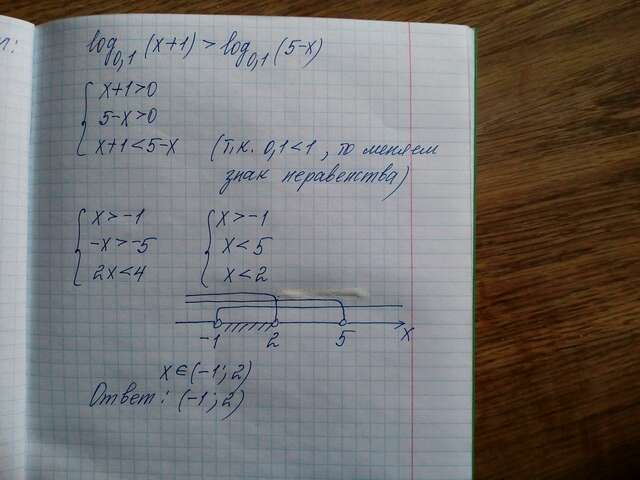 log₀,₁(x+1) > log₀,₁(5-x)
x+1>0
5-x>0
x+1<5-x (т.к. 0,1<1, то меняем
знак неравенства)
x>-1 x>-1
-x>-5 x<5
2x<4 x<2
-1 2 5 x
x∈(-1; 2)
Ответ: (-1; 2)